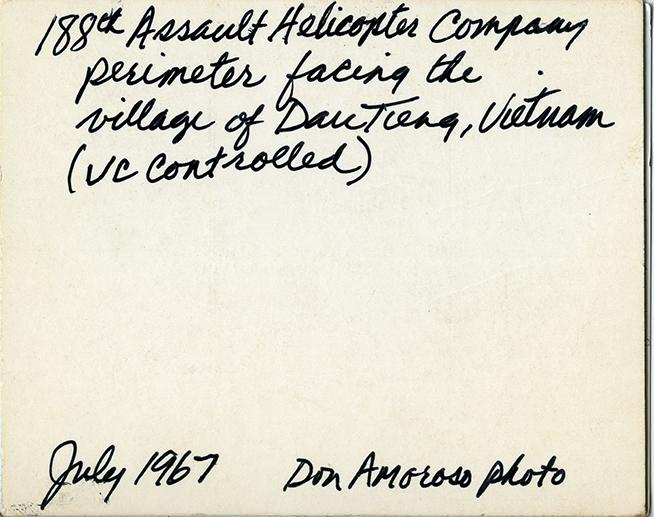 188th Assault Helicopter Company
perimeter facing the
village of Dau Tieng, Vietnam
(VC controlled)
July 1967 Don Amoroso photo